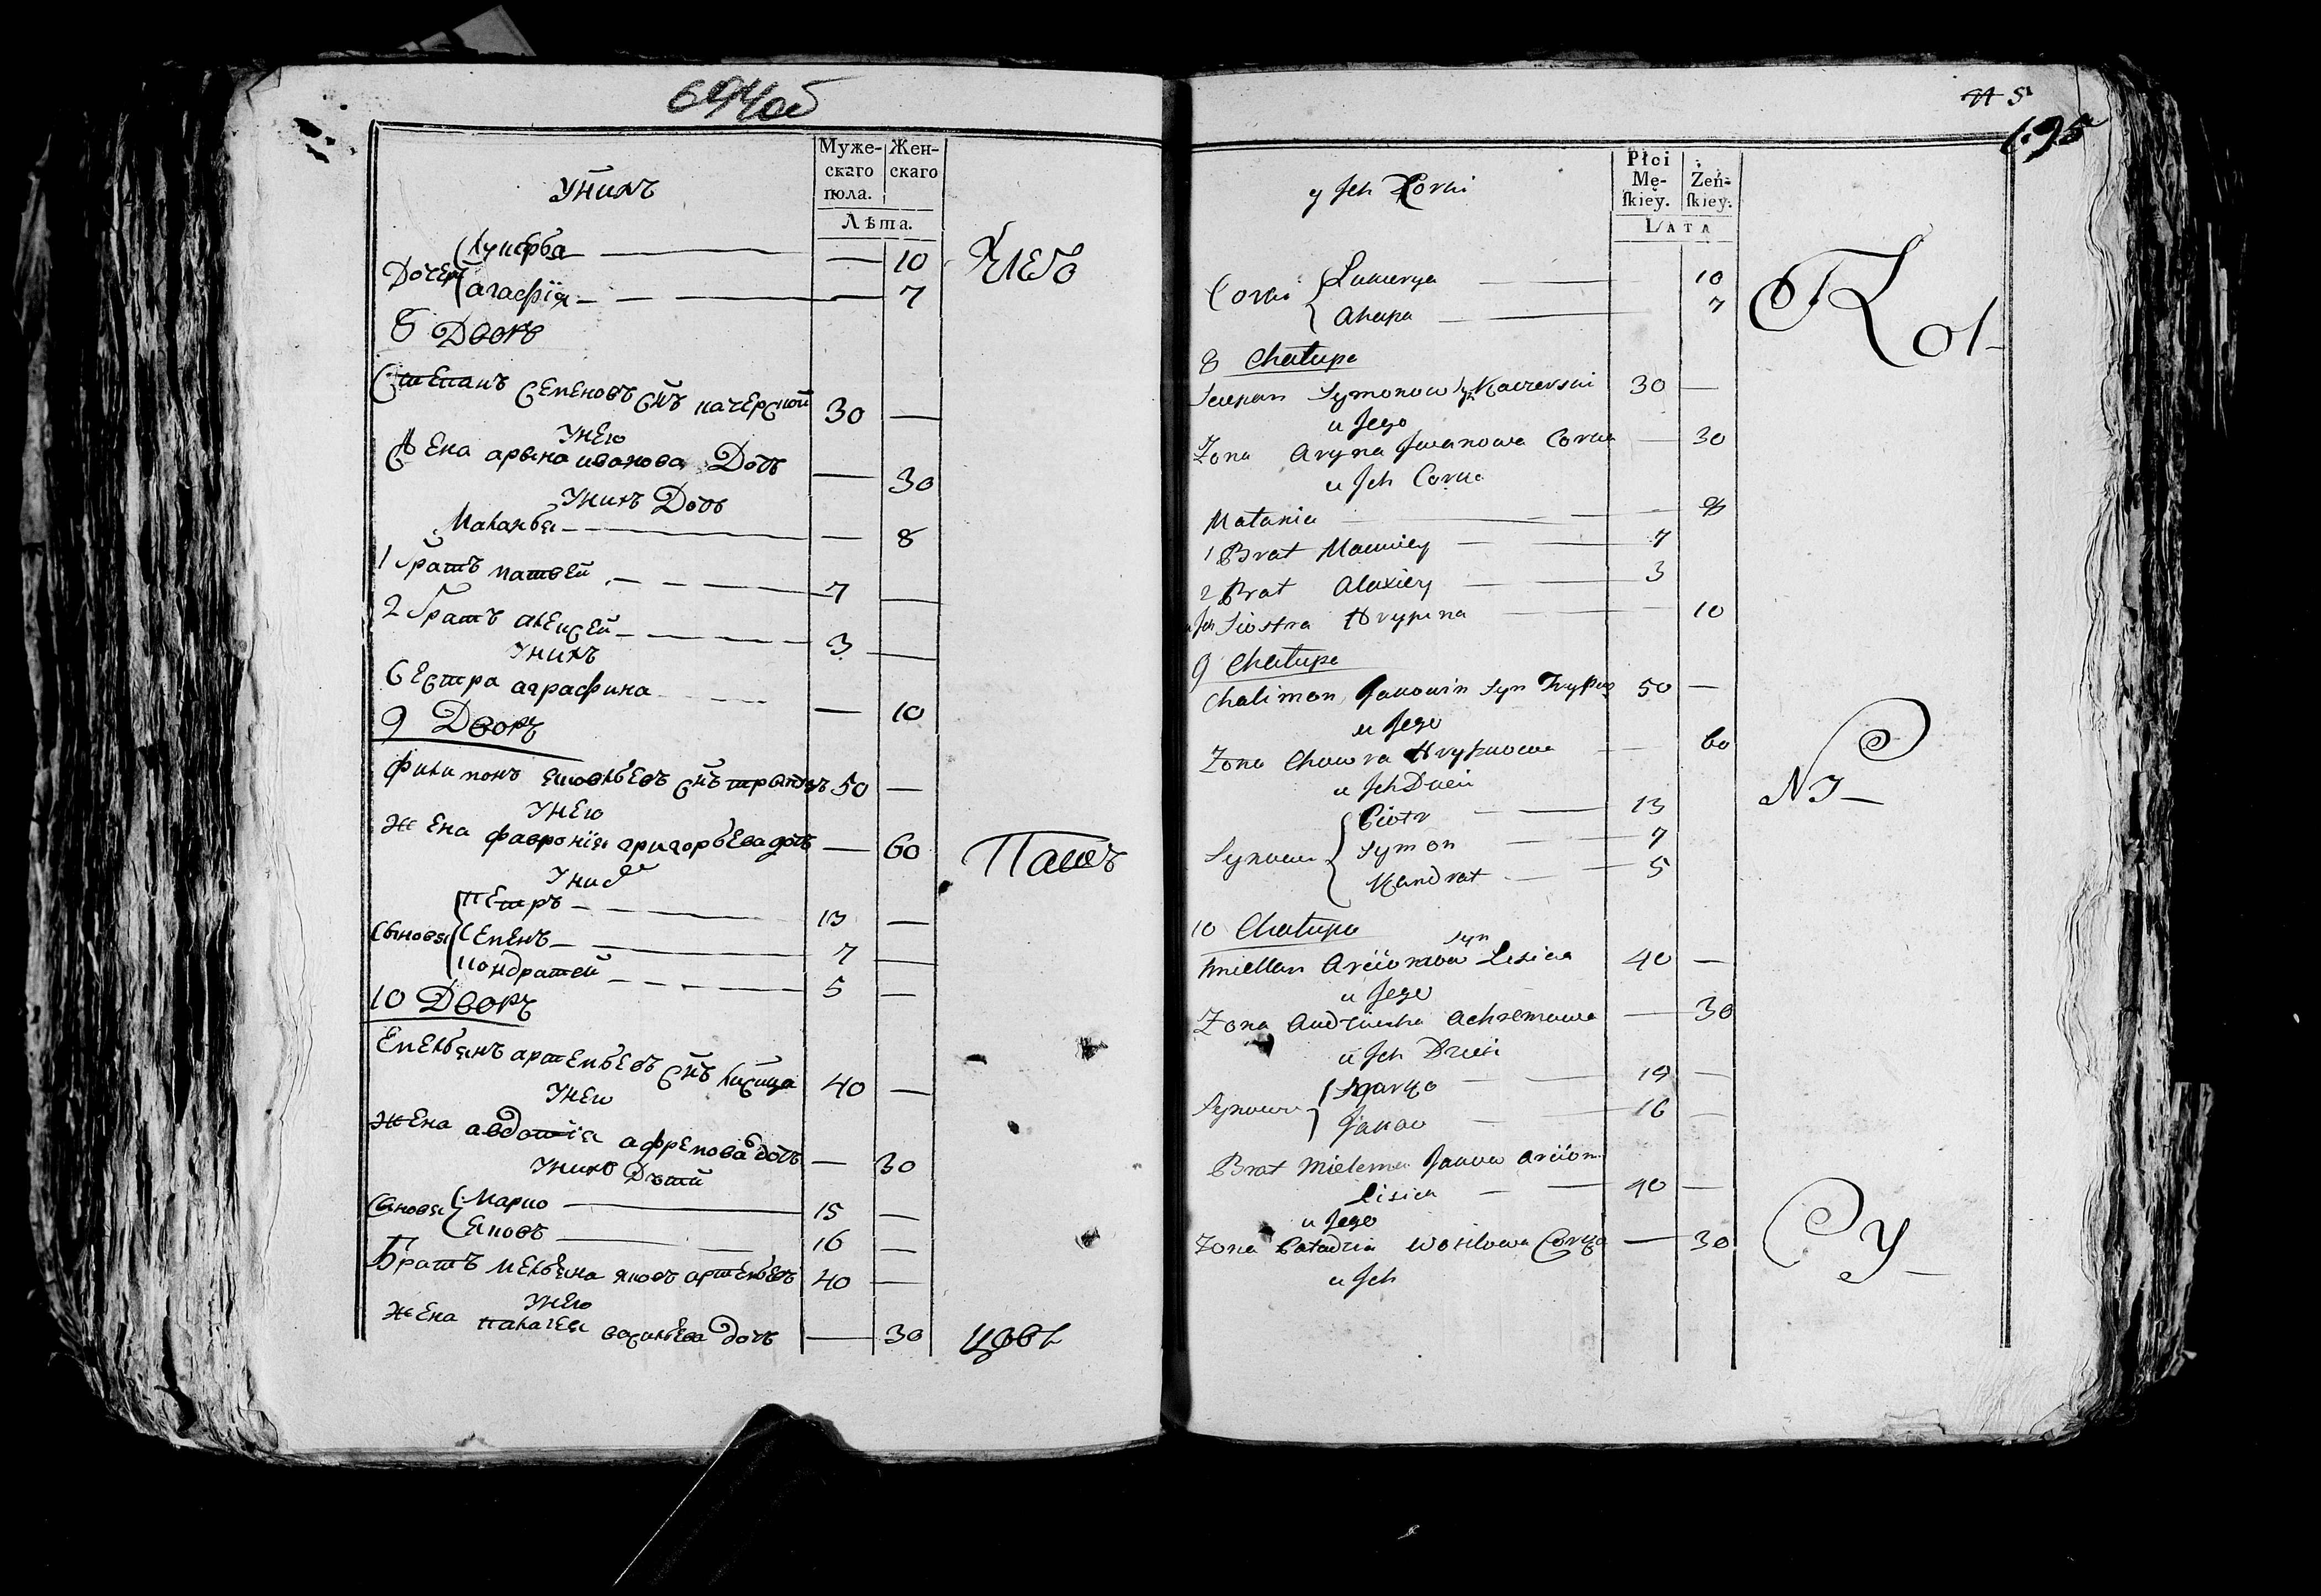 694об
Муже-
скаго
пола.
Жен-
скаго
Лѣта.
Унихъ
Дочери
Лукерья 10
агафiя 7
8 Дворъ
Степанъ Семеновъ снъ качерской 30
Унего
Жена арына иванова Дочь 30
Унихъ Дочь
Маланья 8
1 братъ матвей 7
2 братъ алексей 3
Унихъ
Сестра аграфина 10
9 Дворъ
филимонъ яковлевъ снъ 50
Унего
Жена фаврониiя григорьева дочь 60
Уних
Сыновя
Петръ 13
Семенъ 7
Кондратей 5
10 Дворъ
Емельянъ артемьевъ снъ лисица 40
Унего
Жена авдотiя афремова дочь 30
Унихъ Дѣти
Сыновя
Марко 15
яковъ 16
Братъ мельяна яковъ артемьевъ 40
Унего
Жена палагея васильева дочь 30
Члего
Пашъ
цовъ
5
695
Płci
Mę-
ſkiey.
Żeń-
ſkiey.
LATA
y Jch Corki
Corki
Lukerya 10
Ahapa 7
8 Chałupa
Scepan Symonow Sy Kaczerski 30
u Jego
Zona Aryna Jwanowa Corka 30
u Jch Corka
Małania 8
1 Brat Maciey 7
2 Brat Alexiey 3
u Jch Siostra Hrypina 10
9 Chałupa
Chalimon Jakowin Syn 50
u Jego
Zona Chowra Hryhorowa 60
u Jch Dzieci
Synowie
Piotr 13
Symon 7
Kandrat 5
10 Chałupa
Syn
Amiellan Arciomow Lisica 40
u Jego
Zona Audziucha Achremowa 30
u Jch Dzieci
Synowie
Marko 19
Jakow 16
Brat Mielema Jakow Arciom
Lisica 40
u Jego
Zona Paładzia Wasilowa Corka 30
u Jch
Kol-
NI-
Cy-